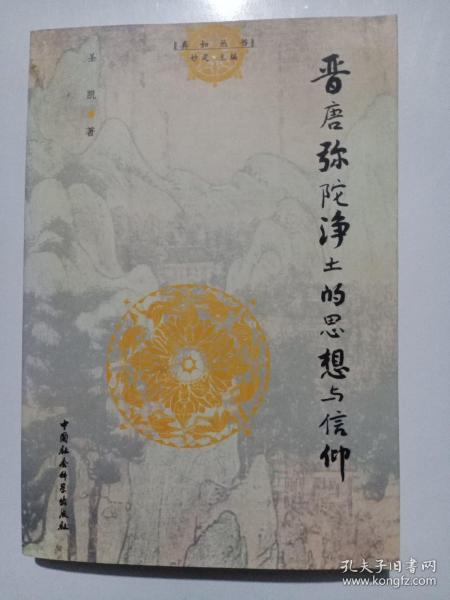 真如丛书
妙灵·主编
晋唐弥陀净土的思想与信仰
圣凯 著
中国社会科学出版社
孔夫子旧书网
www.kongfz.com